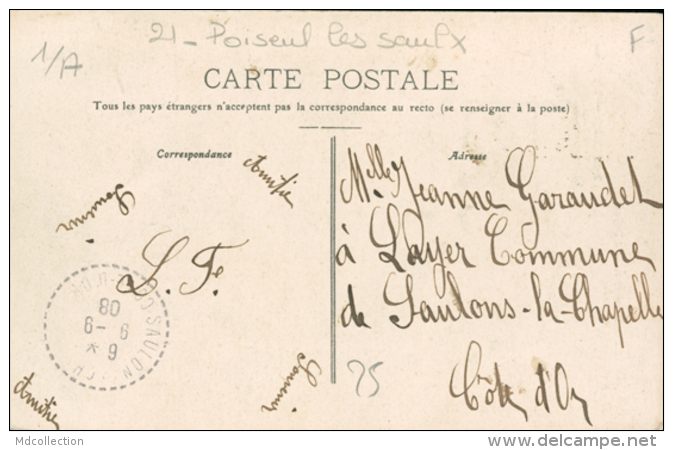 21 - Poiseul les saulx
1/A
F
CARTE POSTALE
Tous les pays étrangers n'acceptent pas la correspondance au recto (se renseigner à la poste)
Correspondance
Amitié
Souvenir
L. F.
Souvenir
Amitié
Adresse
Mlle Jeanne Garaudet
à Layer Commune
de Saulons-la-Chapelle
Côte d'Or
25
Mdcollection
www.delcampe.net